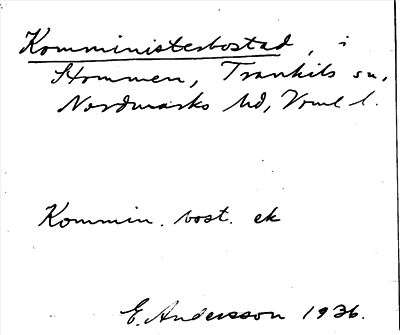 Komministerbostad, i
Strommen, Trankils sn,
Nordmarks hd, Vrml l.
Kommin. bost. ek
E. Andersson 1936.